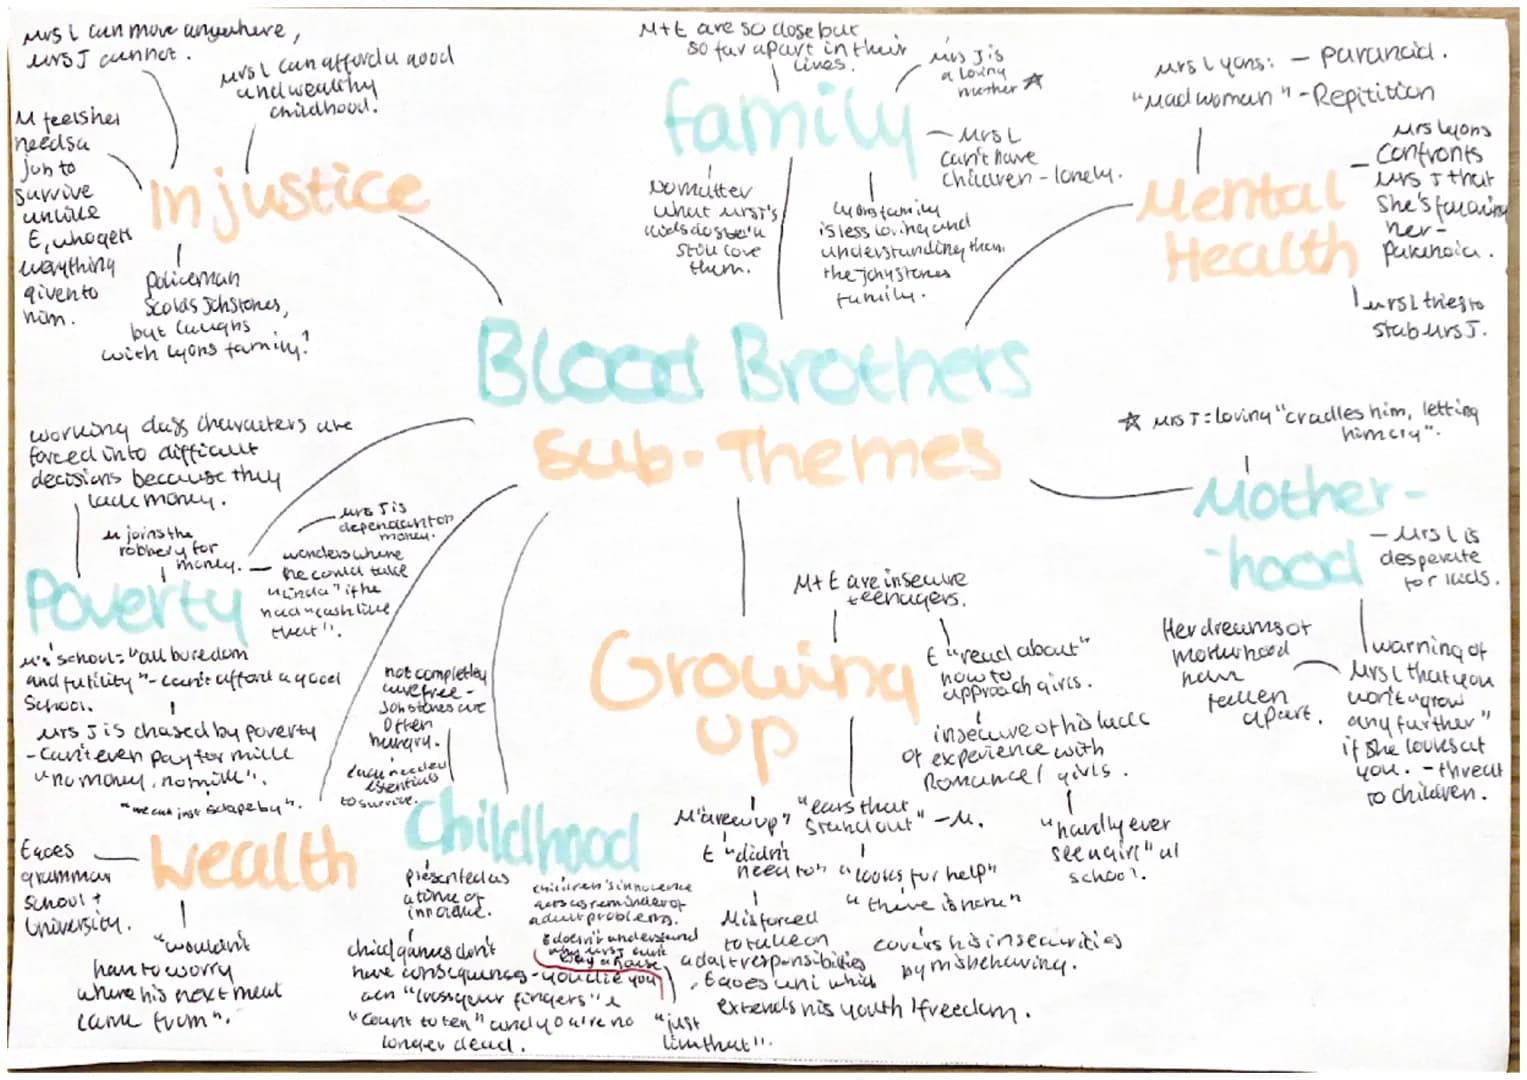 Mrs L can move anywhere,
Mrs J cannot.
Mrs L can afford a good
and wealthy
childhood.
M feels he
needs a
job to
survive
unlike
E, who gets
everything
given to
him.
Injustice
Policeman
scolds Johstones,
but laughs
with Lyons family.
M+E are so close but
so far apart in their
lives.
Mrs J is
a loving
mother ☆
family
Mrs L
can't have
children - lonely.
No matter
what Mrs J's
kids do she'll
still love
them.
Lyons family
is less loving and
understanding than
the johnstones
family.
Mrs Lyons: - paranoid.
"Mad woman" - Repitition
Mental
Health
Mrs Lyons
confronts
Mrs J that
she's following
her -
paranoia.
Mrs L tries to
stab Mrs J.
Blood Brothers
Sub-Themes
working class characters are
forced into difficult
decisions because they
lack money.
M joins the
robbery for
money.
Mrs J is
dependant on
money.
wonders where
he could take
"Linda" if he
had "cash like
that".
Poverty
M's school = "all boredom
and futility" - can't afford a good
school.
Mrs J is chased by poverty
- can't even pay for milk
"no money, no milk".
"me can just scrape by".
☆ Mrs J: loving "cradles him, letting
him cry".
Mother-
-hood
- Mrs L is
desperate
for kids.
Her dreams of
motherhood
have
fallen
apart.
warning of
Mrs L that you
won't "grow
any further"
if she looks at
you. - threat
to children.
M+E are insecure
teenagers.
Growing
up
E "read about"
how to
approach girls.
insecure of his lack
of experience with
Romance / girls.
"hardly ever
see a girl" at
school.
M "grew up"
E "didn't
need to"
M is forced
to take on
adult responsibilities
, E goes uni which
extends his youth / freedom.
"ears that
stand out" - M.
"looks for help"
"there is none"
covers his insecurities
by misbehaving.
not completley
carefree -
Johstones are
often
hungry.
lack needed
essentials
to survive.
Childhood
presented as
a time of
innocence.
child games don't
have consequences - you die you
can "cross your fingers" &
"count to ten" and you're no
longer dead.
children's innocence
acts as reminder of
adult problems.
E doesn't understand
why Mrs J can't
buy a house
"just
like that".
Wealth
E goes
grammar
school +
University.
"wouldn't
have to worry
where his next meal
came from".